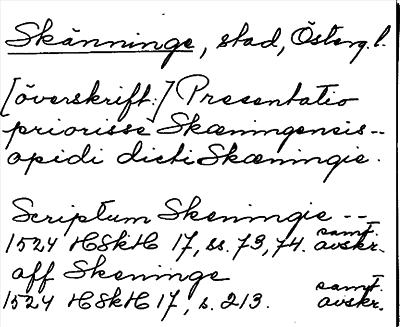 Skänninge, stad, Österg.l.
[överskrift:] Presentatio
priorisse Skæningensis --
opidi dicti Skæningie.
Scriptum Skeningie --
1524 HSkH 17, ss. 73, 74. samt. avskr.
aff Skeninge
1524 HSkH 17, s. 213. samt. avskr.